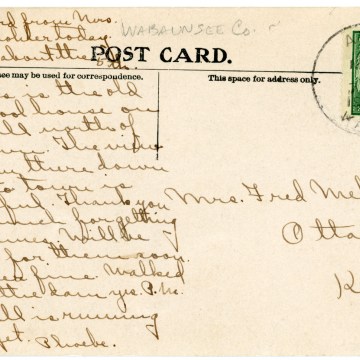 d from Mrs.
today.
about the 5th.
WABAUNSEE Co.
POST CARD.
ce may be used for correspondence.
This space for address only.
is is the old
ool house on
ill north of
The view
there down
town is
ful. Thank you
for getting
Will be
for them soon.
fine. Walked
the dam yes. P.M.
ill is running
yet. Phoebe.
Mrs. Fred Me
Otta
K